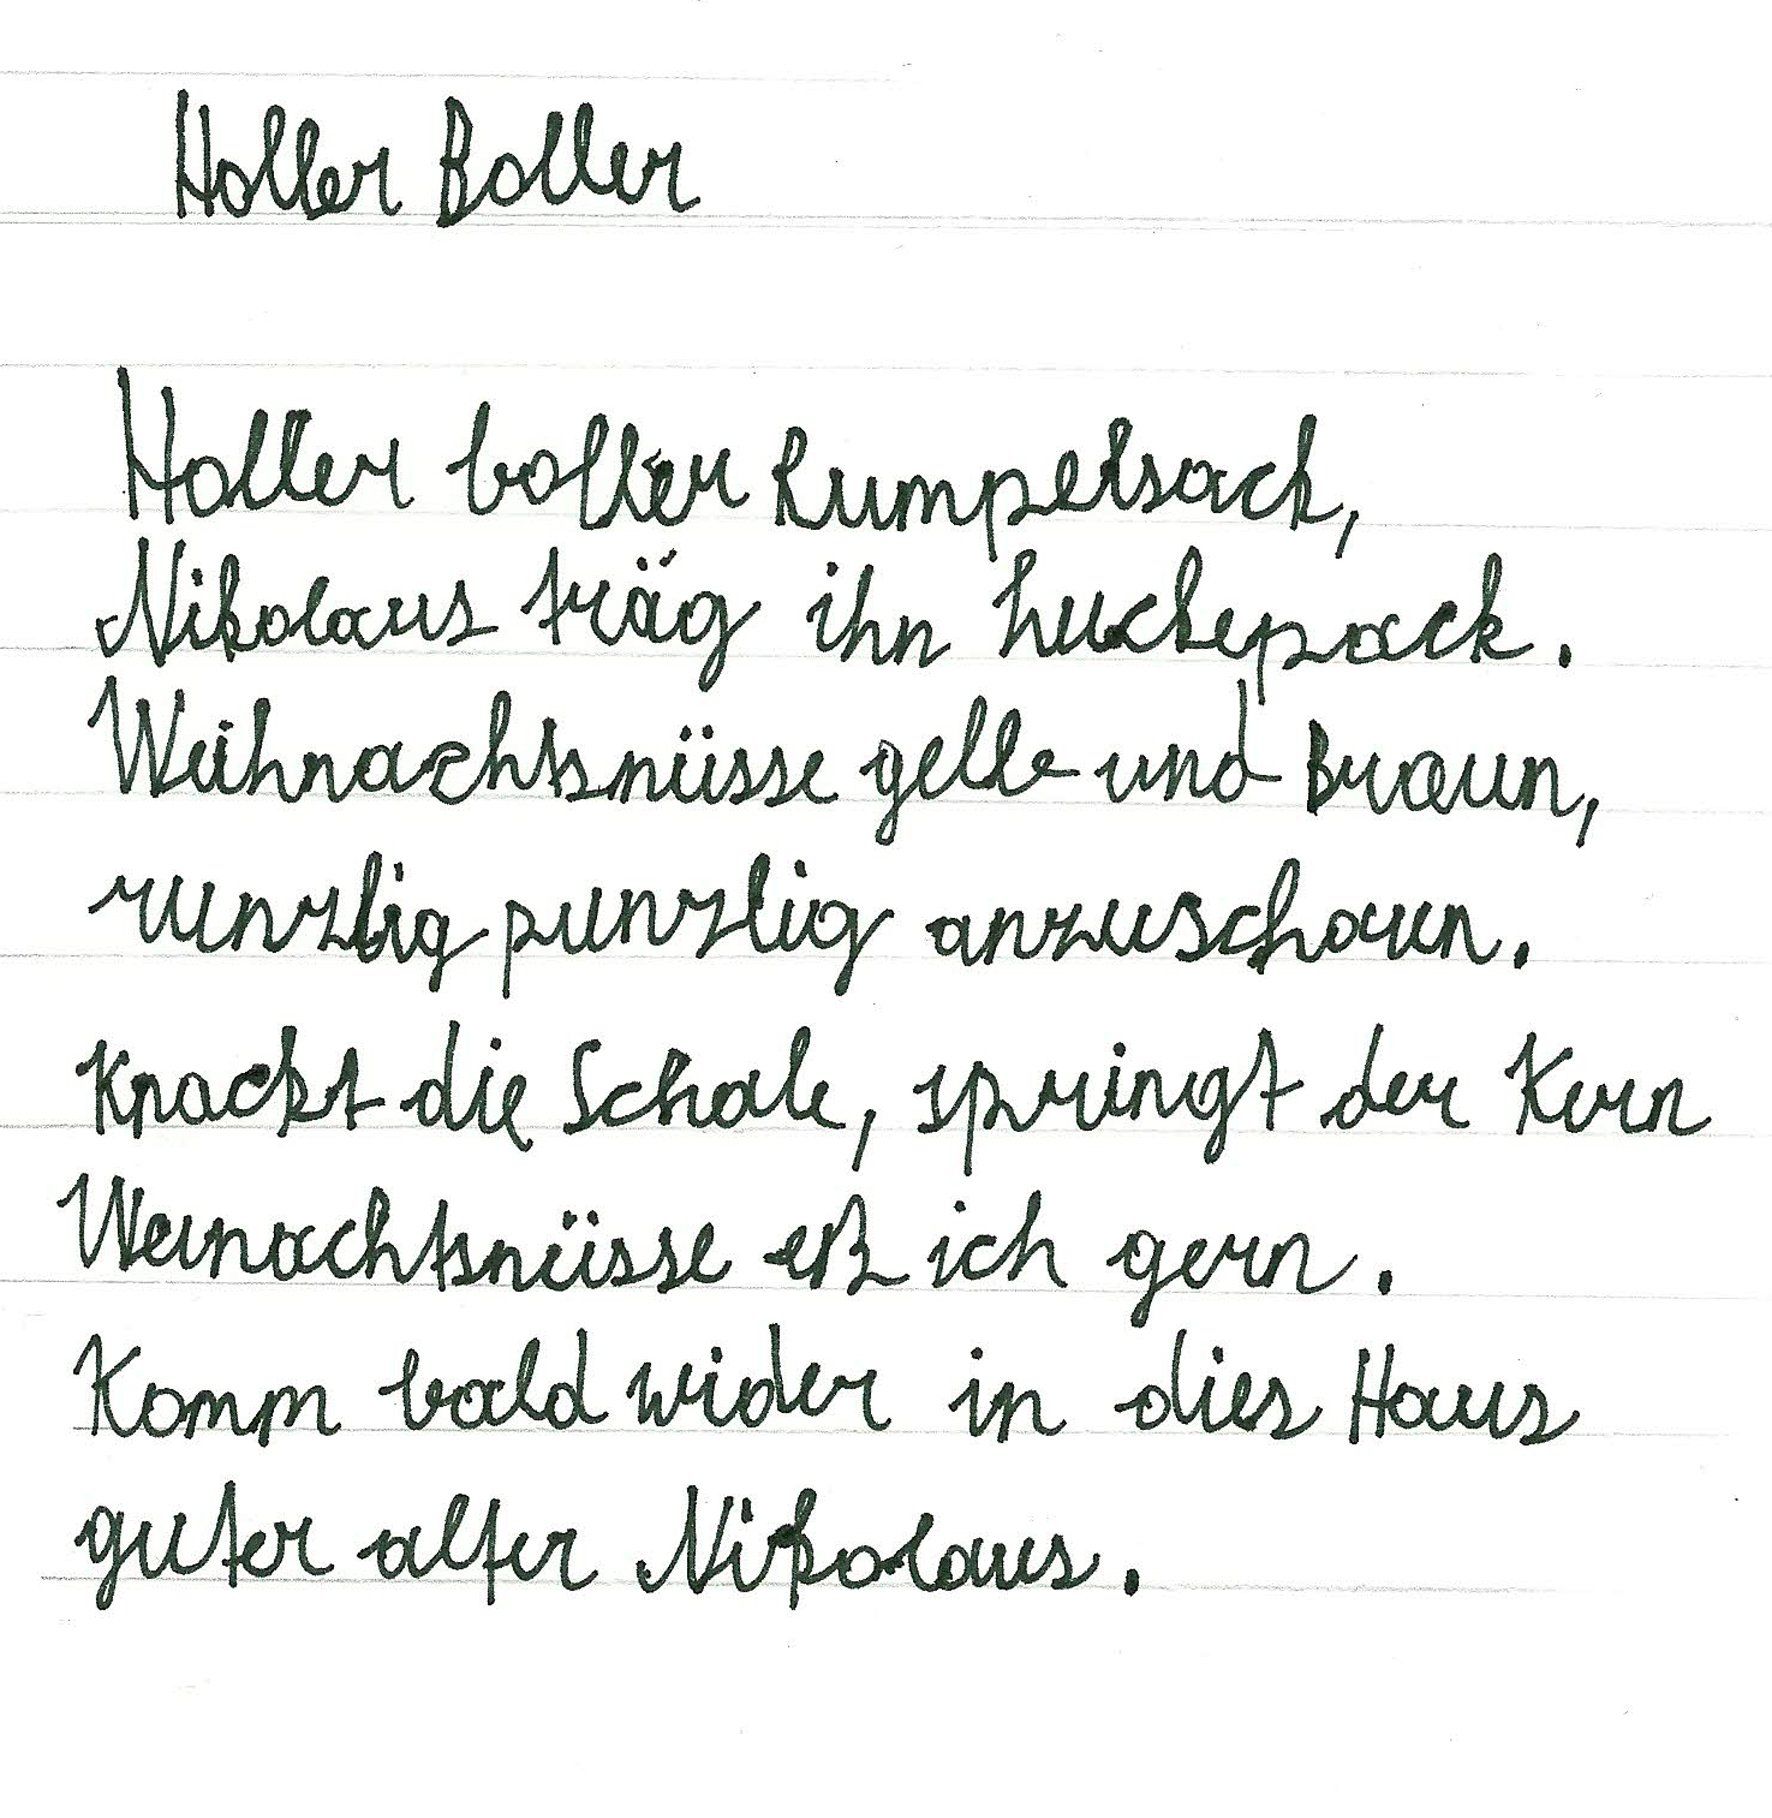 Holler Boller
Holler boller Rumpelsack,
Nikolaus träg ihn huckepack.
Weihnachtsnüsse gelle und Braun,
runzlig punzlig anzuschaun.
Knackt die Schale, springt der Kern
Weinachtsnüsse eß ich gern.
Komm bald wider in dies Haus
guter alter Nikolaus.